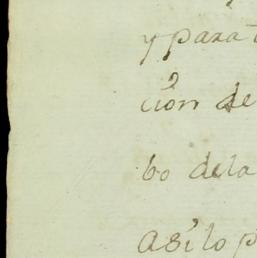 y para
ción de
bo dela
asi lo p